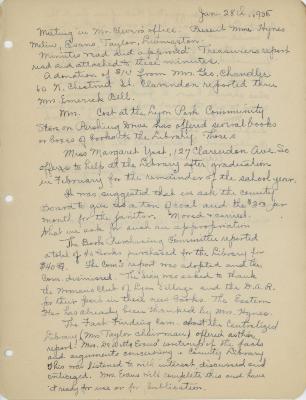 Jan. 28th, 1936
Meeting in Mr. office. Present Mmes Hynes
Evans, Taylor,
Minutes read and approved. Treasurer's report
read and attached to these minutes.
A donation of $1.00 from Mrs. Geo. Chandler
60 N. Chestnut St. Clarendon reported thru
Mrs. Emerick Bell.
Mrs. Cost at the Lyon Park Community
Store on Pershing Drive has offered several books
or boxes of books to the Library.
Miss Margaret Yost, 127 Clarendon Ave. So
offers to help at the Library after graduation
in February for the remainder of the school year.
It was suggested that we ask the county
Board to give us a ton of coal and the $3.00 per
month for the janitor. Moved & carried.
that we ask for such an appropriation
The Book Purchasing Committee reported
a total of books purchased for the Library for
$40. The Com's report was adopted and the
Com. dismissed. The Sec'y was asked to thank
the Woman's Club of Lyon Village and the D.A.R.
for their part in these new books. The Eastern
Star has already been thanked by Mrs. Hynes.
The Fact Finding Com. about the Centralized
Library (Mrs. Taylor chairman) offered another
report. Mrs. De Witts Evans' write up of the facts
and arguments concerning a County Library
This was listened to with interest discussed and
enlarged. Mrs. Evans will complete this and have
it ready for use or for publication.